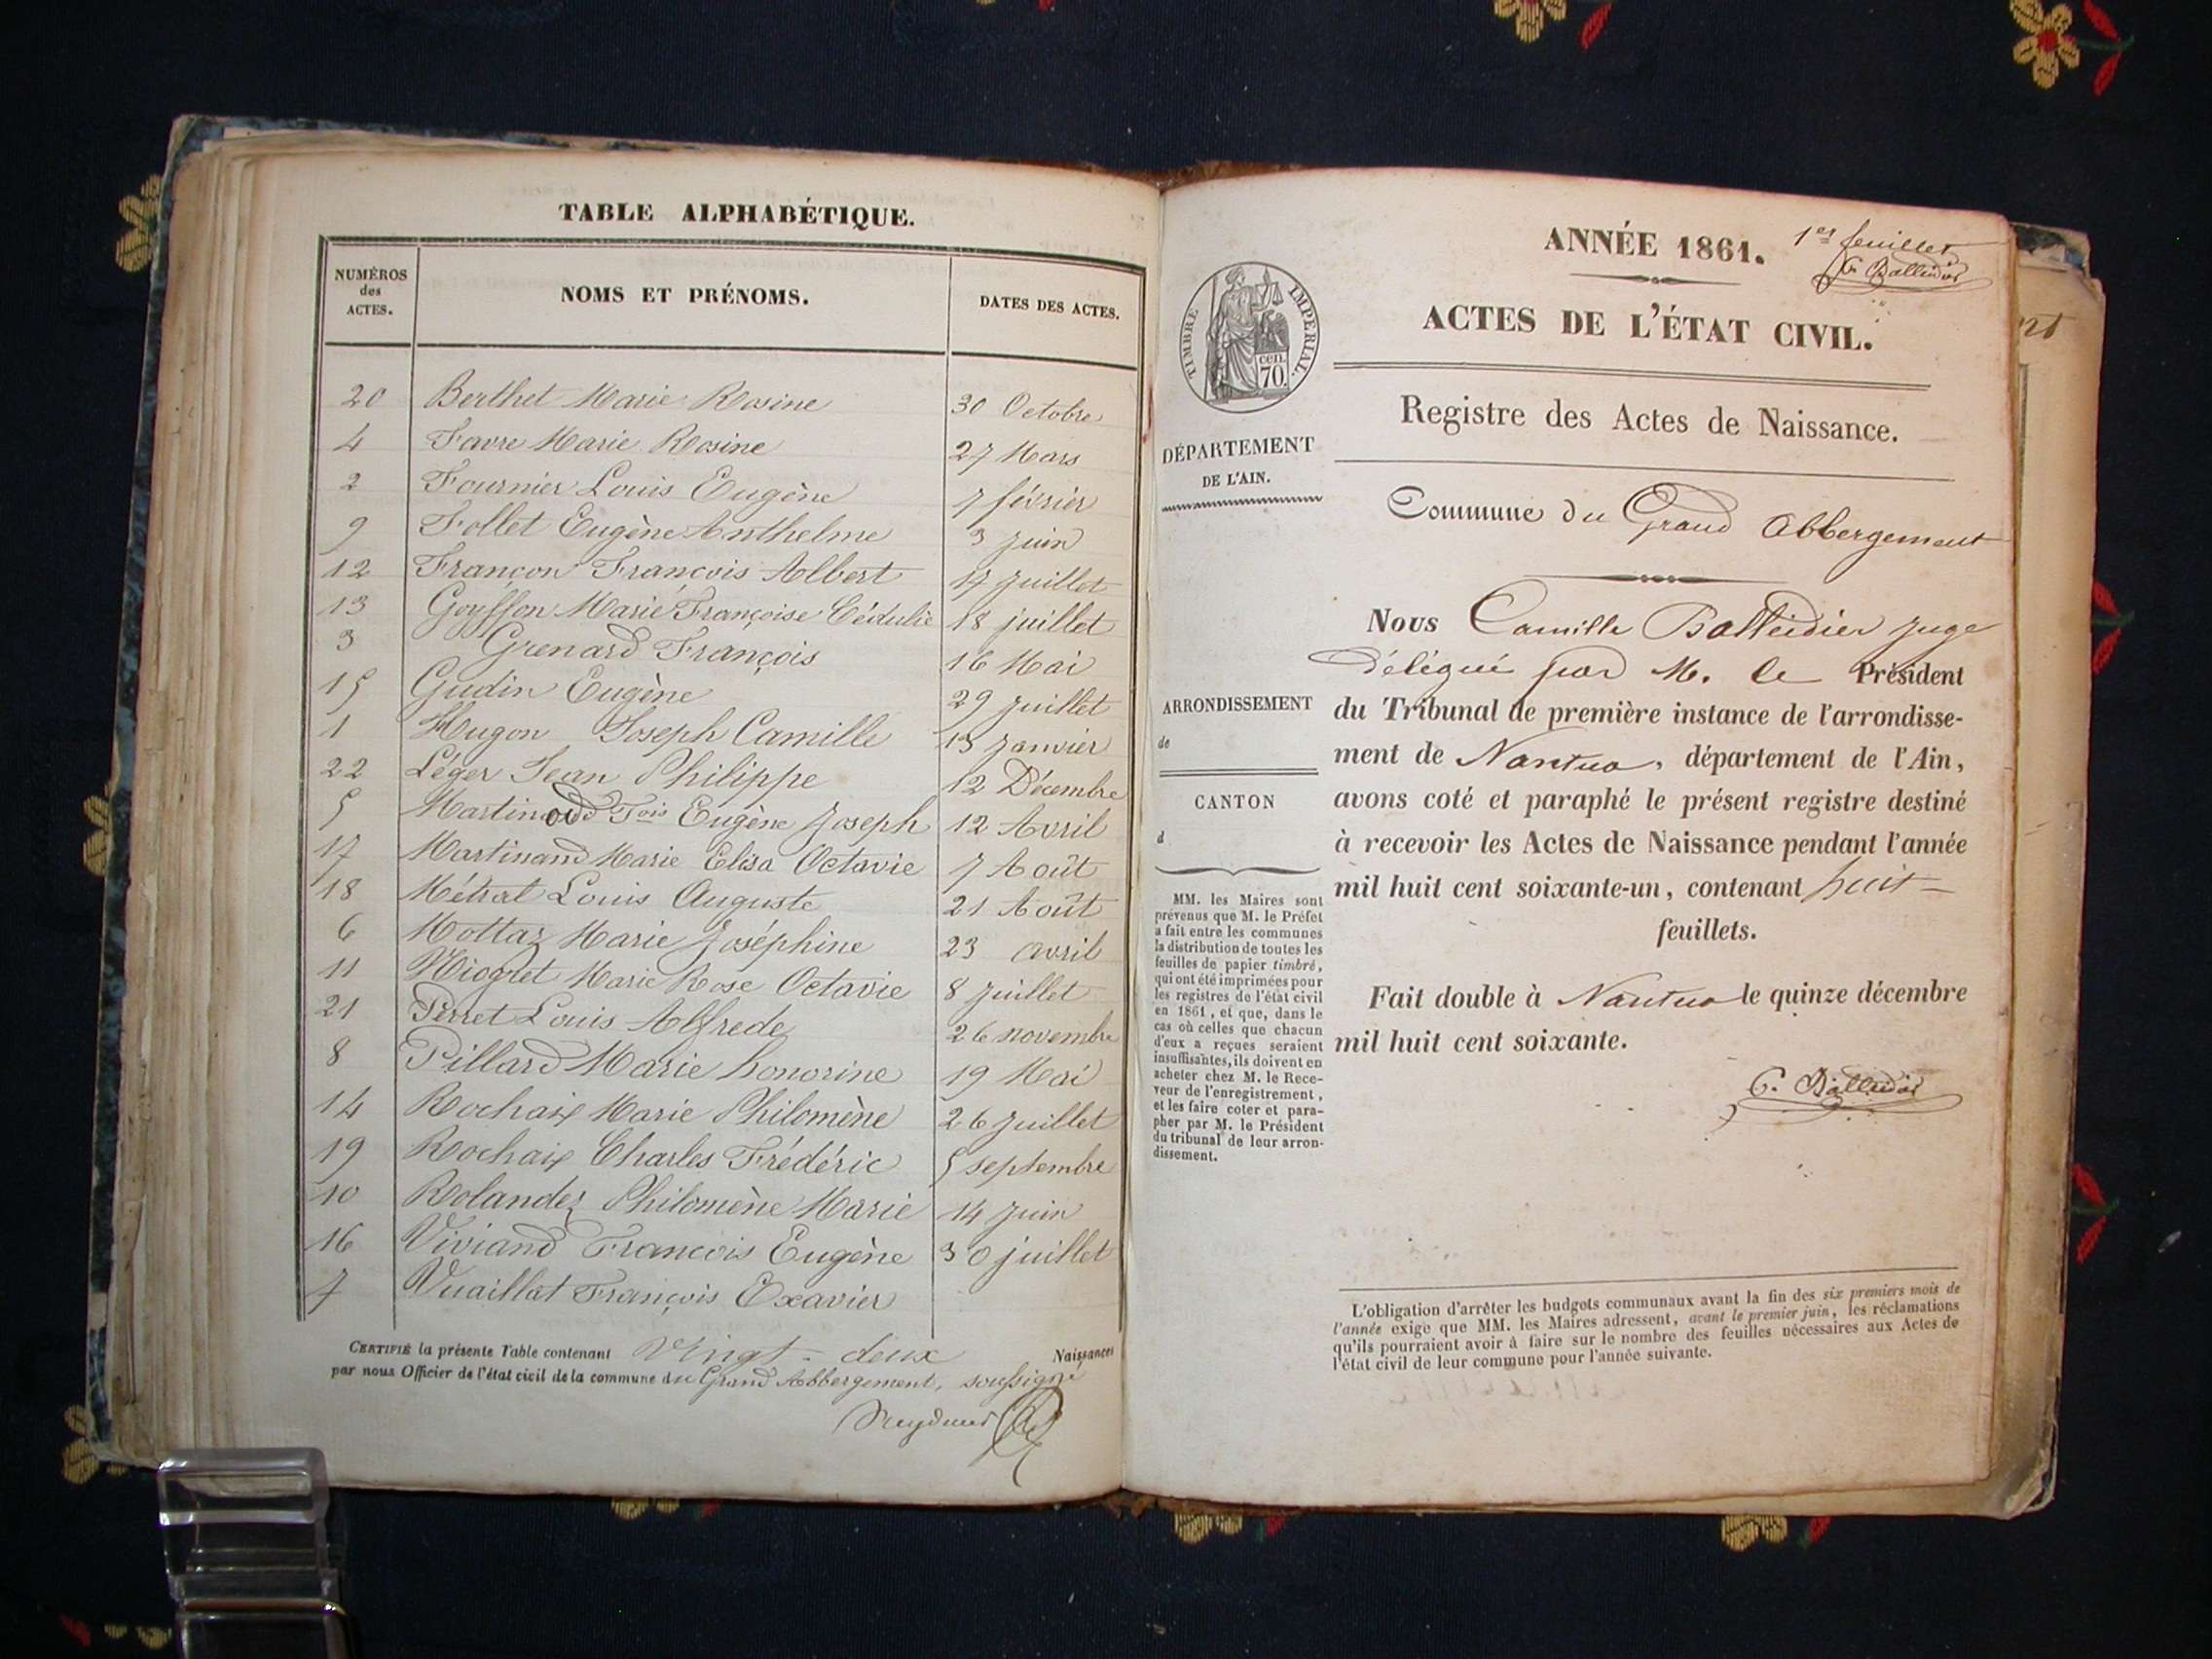 TABLE ALPHABÉTIQUE.
NUMÉROS des ACTES. NOMS ET PRÉNOMS. DATES DES ACTES.
20 Berthet Marie Rosine 30 Octobre
4 Favre Marie Rosine 27 Mars
2 Fournier Louis Eugène 7 février
9 Follet Eugène Anthelme 3 juin
12 Françon François Albert 17 juillet
13 Gouffon Marie Françoise Cédulie 18 juillet
3 Grenard François 16 Mai
15 Gudin Eugène 29 juillet
1 Hugon Joseph Camille 13 janvier
22 Léger Jean Philippe 12 Décembre
5 Martinod Fois Eugène Joseph 12 Avril
17 Martinand Marie Elisa Octavie 7 Août
18 Métral Louis Auguste 21 Août
6 Mottaz Marie Joséphine 23 avril
11 Niogret Marie Rose Octavie 8 juillet
21 Perret Louis Alfrede 26 novembre
8 Pillard Marie honorine 19 Mai
14 Rochaix Marie Philomène 26 juillet
19 Rochaix Charles Frédéric 5 septembre
10 Rolandez Philomène Marie 14 juin
16 Viviand François Eugène 30 juillet
7 Vuaillat François Exavier
CERTIFIÉ la présente Table contenant Vingt-deux Naissances
par nous Officier de l'état civil de la commune du Grand Abbergement, soussigné
1er feuillet
ANNÉE 1861.
C. Balleidier
ACTES DE L'ÉTAT CIVIL.
TIMBRE IMPÉRIAL.
cen. 70.
Registre des Actes de Naissance.
DÉPARTEMENT
DE L'AIN.
Commune du Grand Abbergement
Nous Camille Balleidier juge
délégué par M. le Président
du Tribunal de première instance de l'arrondisse-
ment de Nantua, département de l'Ain,
avons coté et paraphé le présent registre destiné
à recevoir les Actes de Naissance pendant l'année
mil huit cent soixante-un, contenant huit
feuillets.
Fait double à Nantua le quinze décembre
mil huit cent soixante.
C. Balleidier
ARRONDISSEMENT
de
CANTON
d
MM. les Maires sont
prévenus que M. le Préfet
a fait entre les communes
la distribution de toutes les
feuilles de papier timbré,
qui ont été imprimées pour
les registres de l'état civil
en 1861, et que, dans le
cas où celles que chacun
d'eux a reçues seraient
insuffisantes, ils doivent en
acheter chez M. le Rece-
veur de l'enregistrement,
et les faire coter et para-
pher par M. le Président
du tribunal de leur arron-
dissement.
L'obligation d'arrêter les budgets communaux avant la fin des six premiers mois de
l'année exige que MM. les Maires adressent, avant le premier juin, les réclamations
qu'ils pourraient avoir à faire sur le nombre des feuilles nécessaires aux Actes de
l'état civil de leur commune pour l'année suivante.